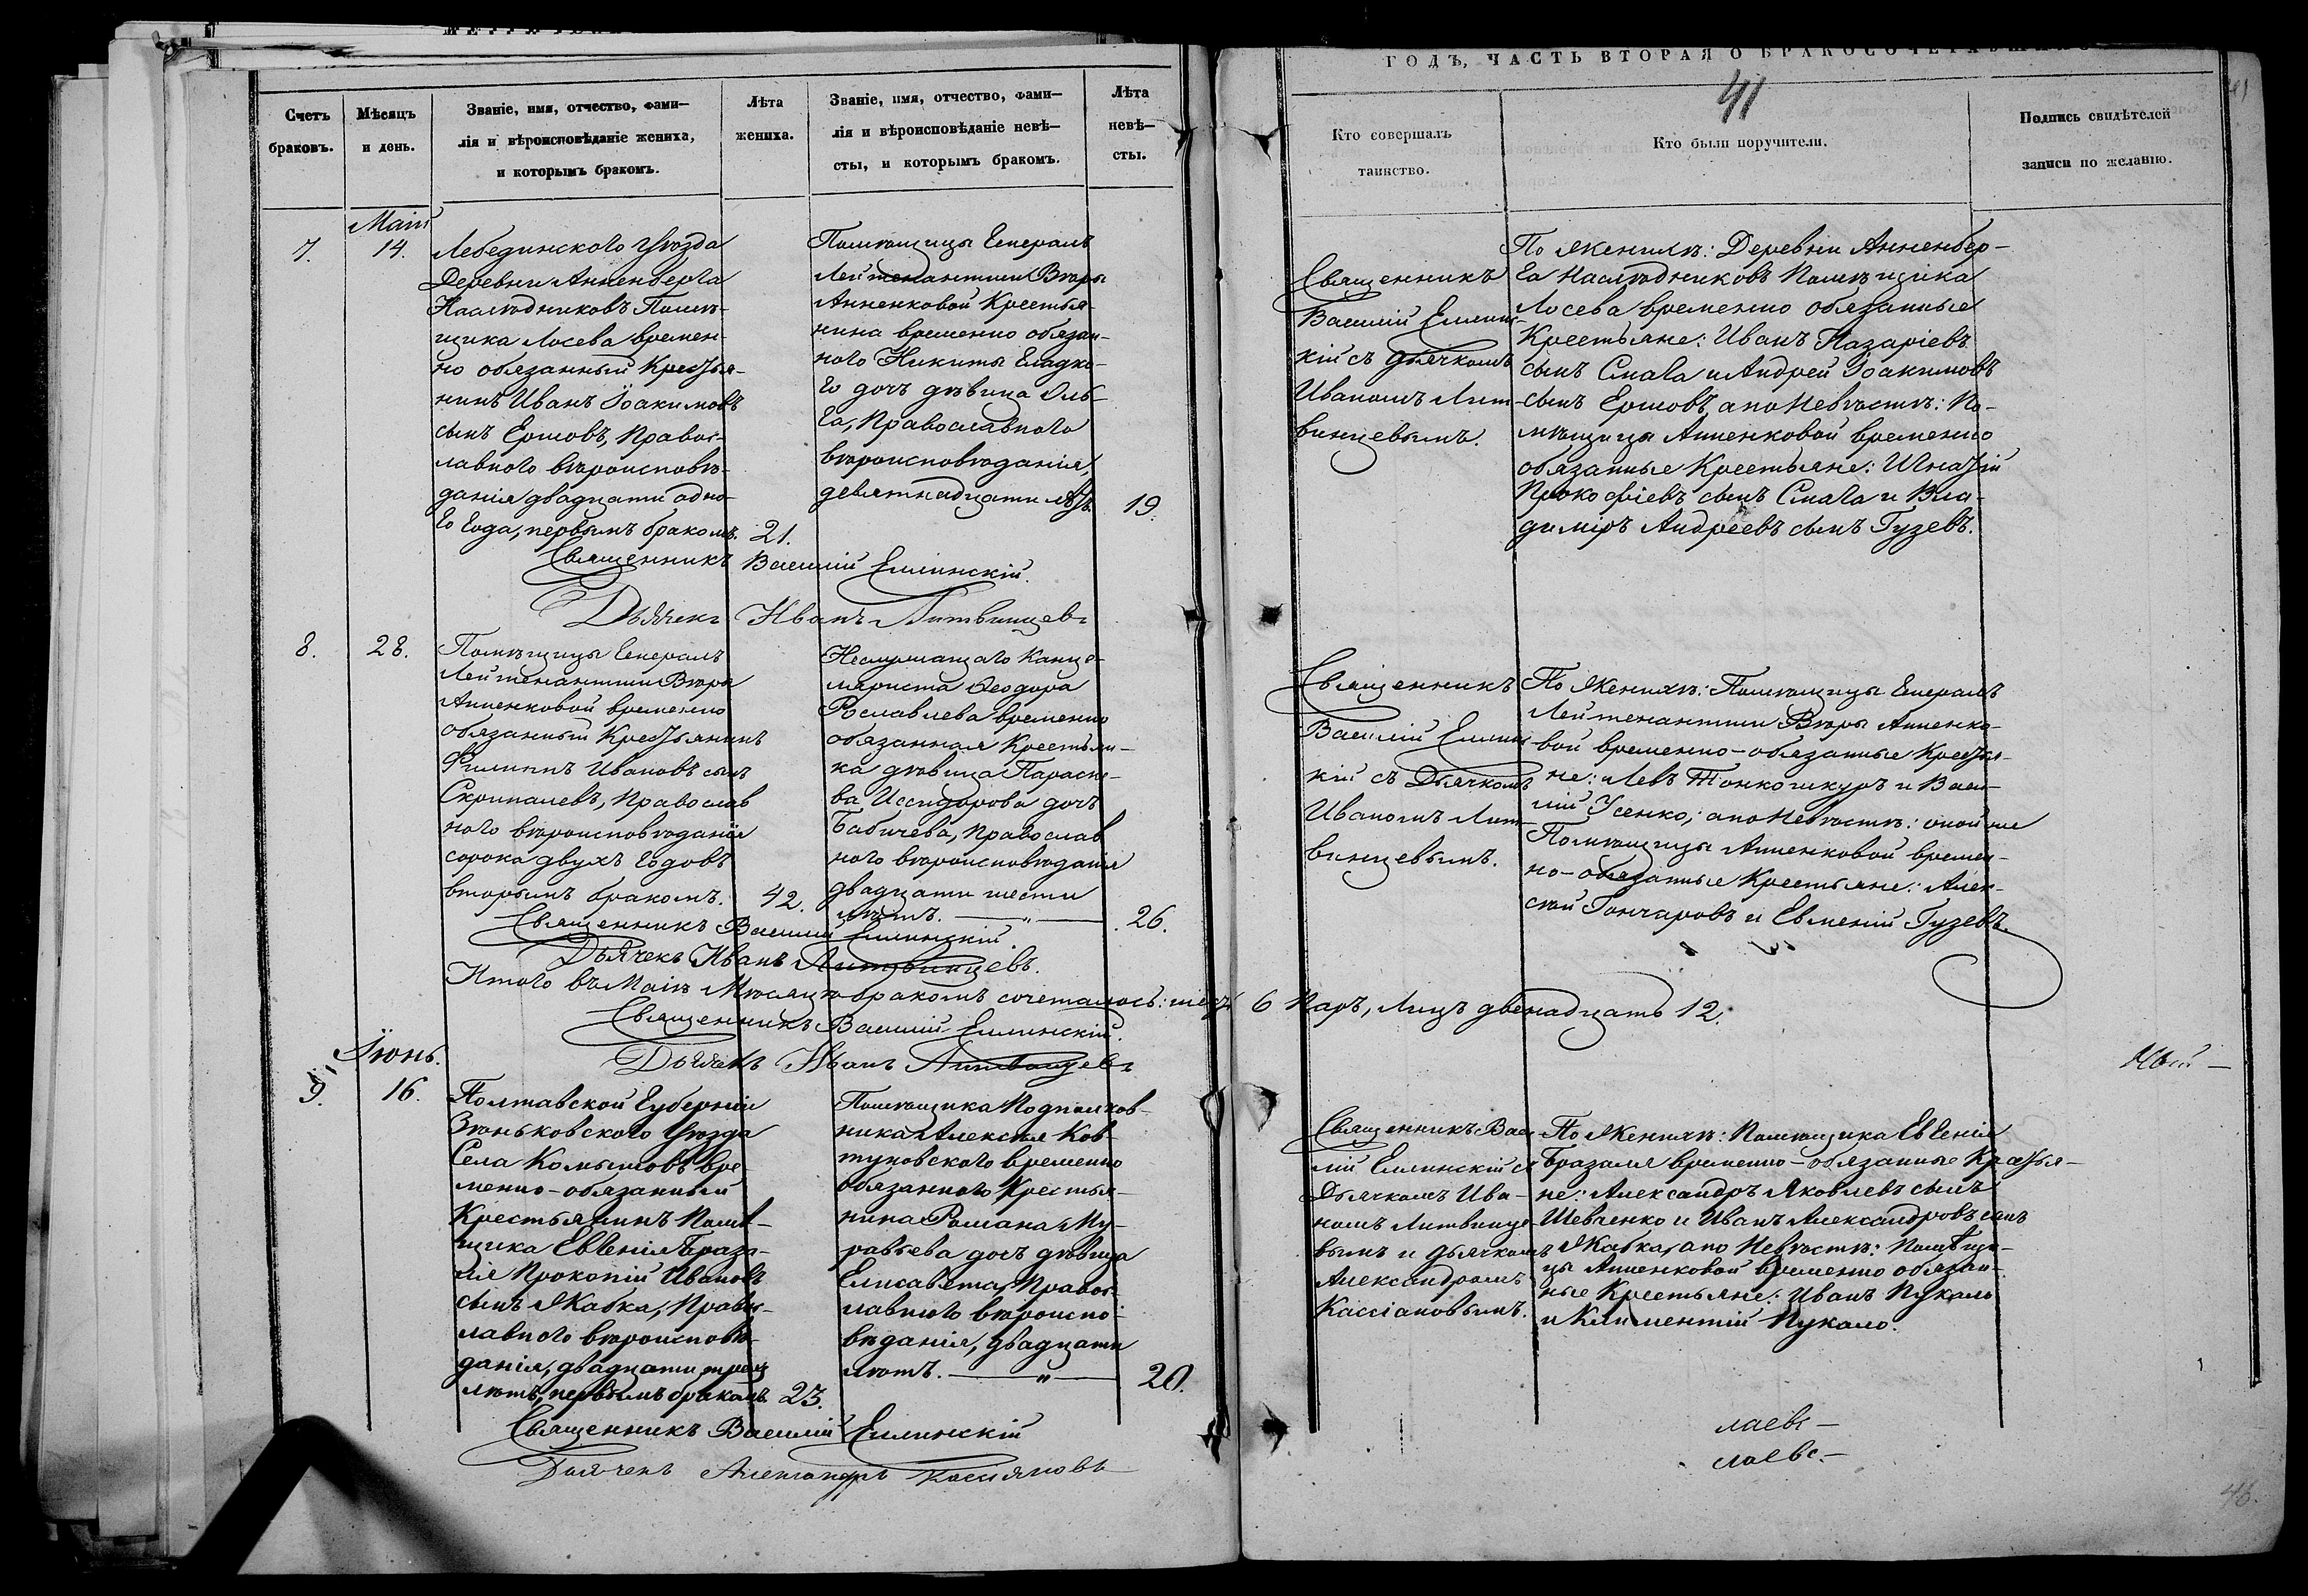 ГОДЪ, ЧАСТЬ ВТОРАЯ О БРАКОСОЧЕТАВШИХСЯ
41
Счетъ
браковъ.
Мѣсяцъ
и день.
Званіе, имя, отчество, фами—
лія и вѣроисповѣданіе жениха,
и которымъ бракомъ.
Лѣта
жениха.
Званіе, имя, отчество, фами—
лія и вѣроисповѣданіе невѣ—
сты, и которымъ бракомъ.
Лѣта
невѣ—
сты.
Кто совершалъ
таинство.
Кто были поручители.
Подпись свидѣтелей
записи по желанію.
7.
Маій
14.
Лебединского Уѣзда
Деревни Анненберга
Наслѣдниковъ Помѣ-
щика Лосева времен-
но обязанный Крестья-
нинъ Иванъ Іоакимовъ
сынъ Ершовъ, Правос-
лавного вѣроисповѣ-
данія двадцати одно-
го года, первымъ бракомъ.
21.
Помѣщицы Генералъ
Лейтенантши Вѣры
Анненковой Крестья-
нина временно обязан-
ного Никиты Гладко-
го дочь дѣвица Оль-
га, Православного
вѣроисповѣданія,
девятнадцати лѣтъ.
19.
Священникъ Василій Еллинскій.
Дьячекъ Иванъ Литвинцевъ
Священникъ
Василій Еллинс-
кій съ дьячкомъ
Иваномъ Лит-
винцевымъ.
По Женихѣ: Деревни Анненбер-
га Наслѣдниковъ Помѣщика
Лосева временно обязанные
Крестьяне: Иванъ Назаріевъ
сынъ Смага и Андрей Іоакимовъ
сынъ Ершовъ, а по Невѣстѣ: По-
мѣщицы Анненковой временно
обязанные Крестьяне: Игнатій
Прокофіевъ сынъ Смага и Вла-
димиръ Андреевъ сынъ Гузевъ.
8.
28.
Помѣщицы Генералъ
Лейтенантши Вѣры
Анненковой временно
обязанный Крестьянинъ
Филиппъ Ивановъ сынъ
Скрипалевъ, Православ
ного вѣроисповѣданія
сорока двухъ годовъ
вторымъ бракомъ.
42.
Неслужащаго Канце-
ляриста Ѳеодора
Рославлева временно
обязанная Крестьян-
ка дѣвица Параске-
ва Иссидорова дочь
Бабичева, Православ
ного вѣроисповѣданія
двадцати шести
лѣтъ. — " —
26.
Священникъ Василій Еллинскій.
Дьячекъ Иванъ Литвинцевъ.
Священникъ
Василій Еллинс
кій съ Дьячкомъ
Иваномъ Лит-
винцевымъ.
По Женихѣ: Помѣщицы Генералъ
Лейтенантши Вѣры Анненко-
вой временно-обязанные Крестья-
не: Левъ Тонкошкуръ и Васи-
лій Усенко; а по Невѣстѣ: оной же
Помѣщицы Анненковой времен-
но-обязанные Крестьяне: Алек-
сѣй Гончаровъ и Евменій Гузевъ.
Итого въ Маіѣ Мѣсяцѣ бракомъ сочеталось: шесть 6 Паръ, Лицъ двенадцать 12.
Священникъ Василій Еллинскій.
Дьячекъ Иванъ Литвинцевъ
Іюнь.
9.
16.
Полтавской Губерніи
Зѣньковского Уѣзда
Села Комышовъ вре-
менно-обязанный
Крестьянинъ Помѣ-
щика Евгенія Браза-
ля Прокопій Ивановъ
сынъ Жабка, Правос-
лавного вѣроисповѣ-
данія, двадцати трехъ
лѣтъ, первымъ бракомъ.
23.
Помѣщика Подполков-
ника Алексѣя Ков-
туновского временно
обязанного Крестья-
нина Романа Му-
равьева дочь дѣвица
Елисавета, Правос-
лавного вѣроиспо-
вѣданія, двадцати
лѣтъ. — " —
20.
Священникъ Василій Еллинскій
Дьячекъ Александръ Касьяновъ
Священникъ Васи-
лій Еллинскій съ
Дьячкомъ Ива-
номъ Литвинце-
вымъ и дьячкомъ
Александромъ
Кассіановымъ.
По Женихѣ: Помѣщика Евгенія
Бразаля временно-обязанные Крестья-
не: Александръ Яковлевъ сынъ
Шевченко и Иванъ Александровъ сынъ
Жабка, а по Невѣстѣ: Помѣщи-
цы Анненковой временно обязан-
ные Крестьяне: Иванъ Пукало
и Климентій Пукало.
лаевъ—
лаевъ.—
46.